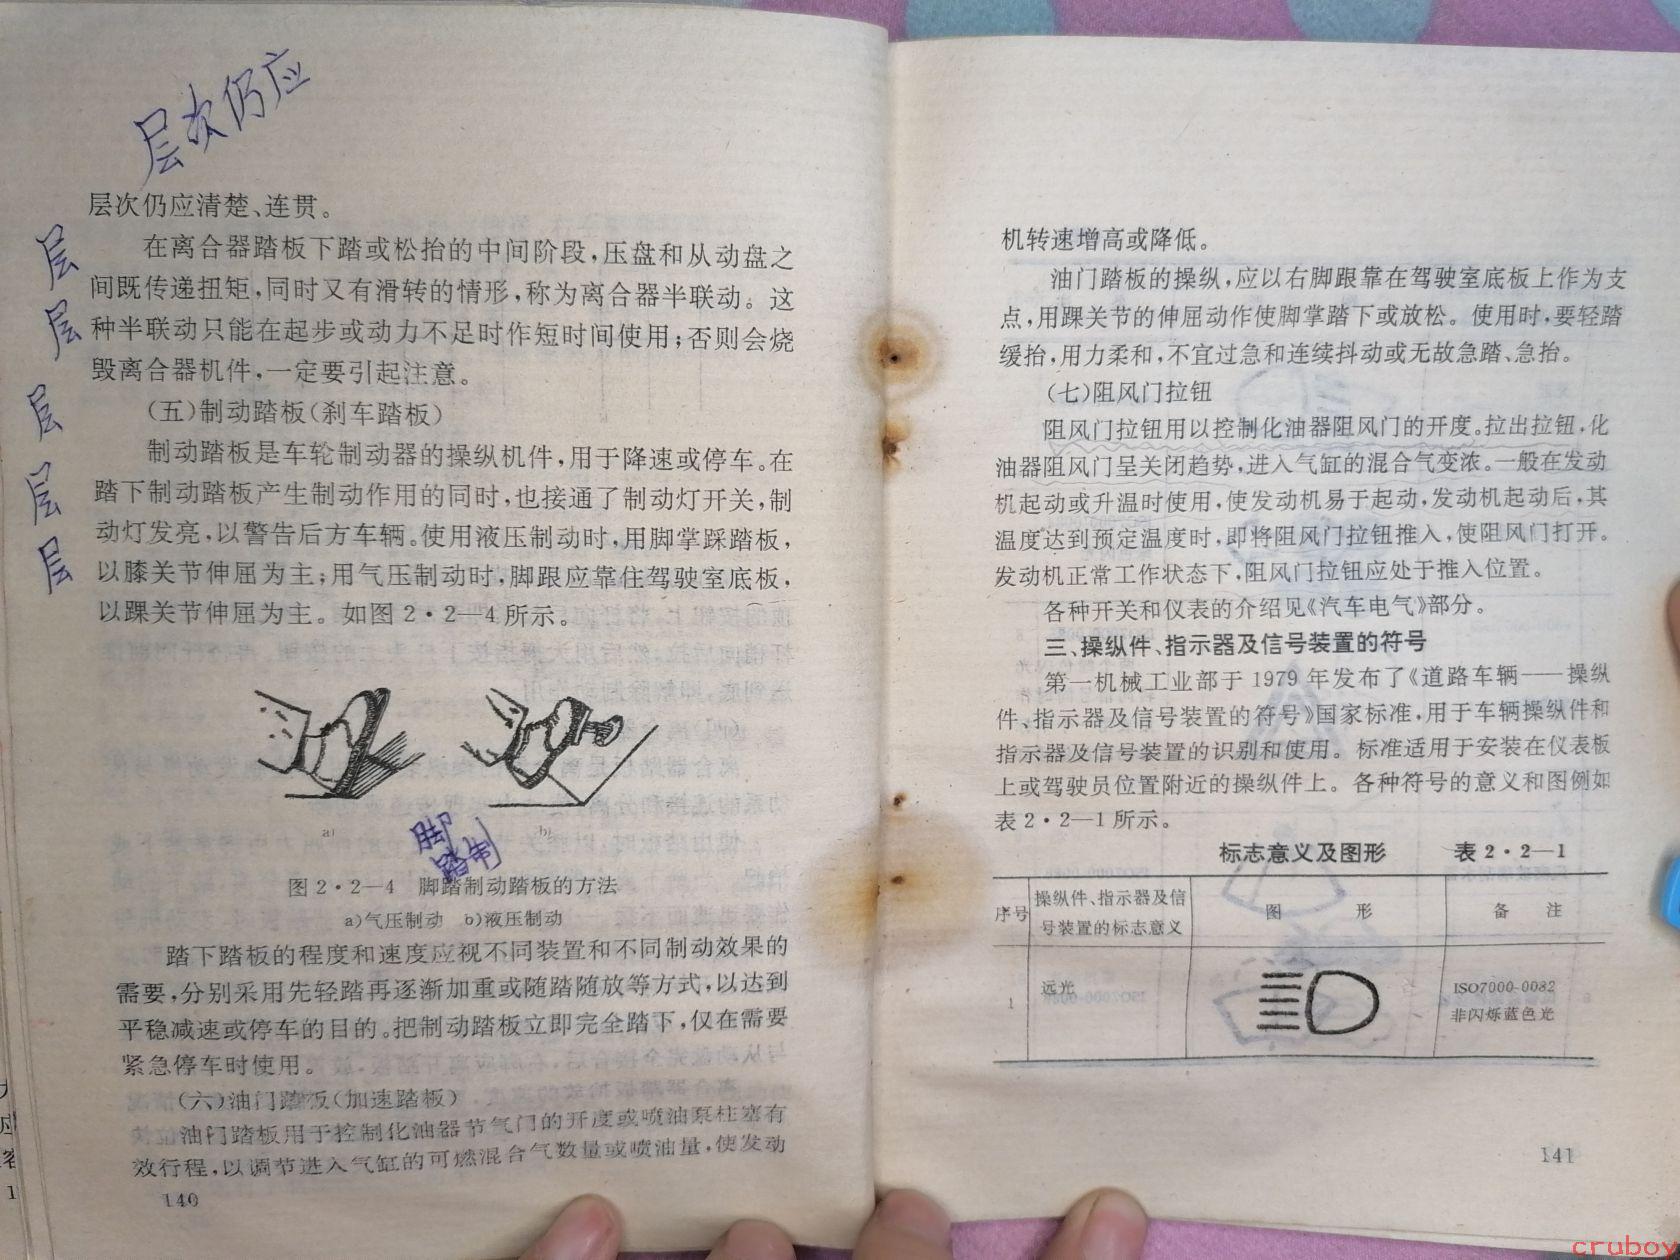 层次仍应
层次仍应清楚、连贯。
在离合器踏板下踏或松抬的中间阶段，压盘和从动盘之
间既传递扭矩，同时又有滑转的情形，称为离合器半联动。这
种半联动只能在起步或动力不足时作短时间使用；否则会烧
毁离合器机件，一定要引起注意。
层
层
层
层
层
（五）制动踏板（刹车踏板）
制动踏板是车轮制动器的操纵机件，用于降速或停车。在
踏下制动踏板产生制动作用的同时，也接通了制动灯开关，制
动灯发亮，以警告后方车辆。使用液压制动时，用脚掌踩踏板，
以膝关节伸屈为主；用气压制动时，脚跟应靠住驾驶室底板，
以踝关节伸屈为主。如图2·2—4所示。
a)
b)
脚
踏制
图2·2—4 脚踏制动踏板的方法
a)气压制动 b)液压制动
踏下踏板的程度和速度应视不同装置和不同制动效果的
需要，分别采用先轻踏再逐渐加重或随踏随放等方式，以达到
平稳减速或停车的目的。把制动踏板立即完全踏下，仅在需要
紧急停车时使用。
（六）油门踏板（加速踏板）
油门踏板用于控制化油器节气门的开度或喷油泵柱塞有
效行程，以调节进入气缸的可燃混合气数量或喷油量，使发动
140
机转速增高或降低。
油门踏板的操纵，应以右脚跟靠在驾驶室底板上作为支
点，用踝关节的伸屈动作使脚掌踏下或放松。使用时，要轻踏
缓抬，用力柔和，不宜过急和连续抖动或无故急踏、急抬。
（七）阻风门拉钮
阻风门拉钮用以控制化油器阻风门的开度。拉出拉钮，化
油器阻风门呈关闭趋势，进入气缸的混合气变浓。一般在发动
机起动或升温时使用，使发动机易于起动，发动机起动后，其
温度达到预定温度时，即将阻风门拉钮推入，使阻风门打开。
发动机正常工作状态下，阻风门拉钮应处于推入位置。
各种开关和仪表的介绍见《汽车电气》部分。
三、操纵件、指示器及信号装置的符号
第一机械工业部于1979年发布了《道路车辆——操纵
件、指示器及信号装置的符号》国家标准，用于车辆操纵件和
指示器及信号装置的识别和使用。标准适用于安装在仪表板
上或驾驶员位置附近的操纵件上。各种符号的意义和图例如
表2·2—1所示。
标志意义及图形 表2·2—1
序号 操纵件、指示器及信号装置的标志意义 图 形 备 注
1 远光 ISO7000-0082
非闪烁蓝色光
141
cruboy